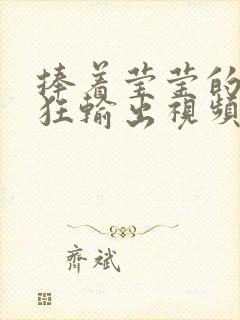 捧着莹莹的
狂輸出視頻
齊斌